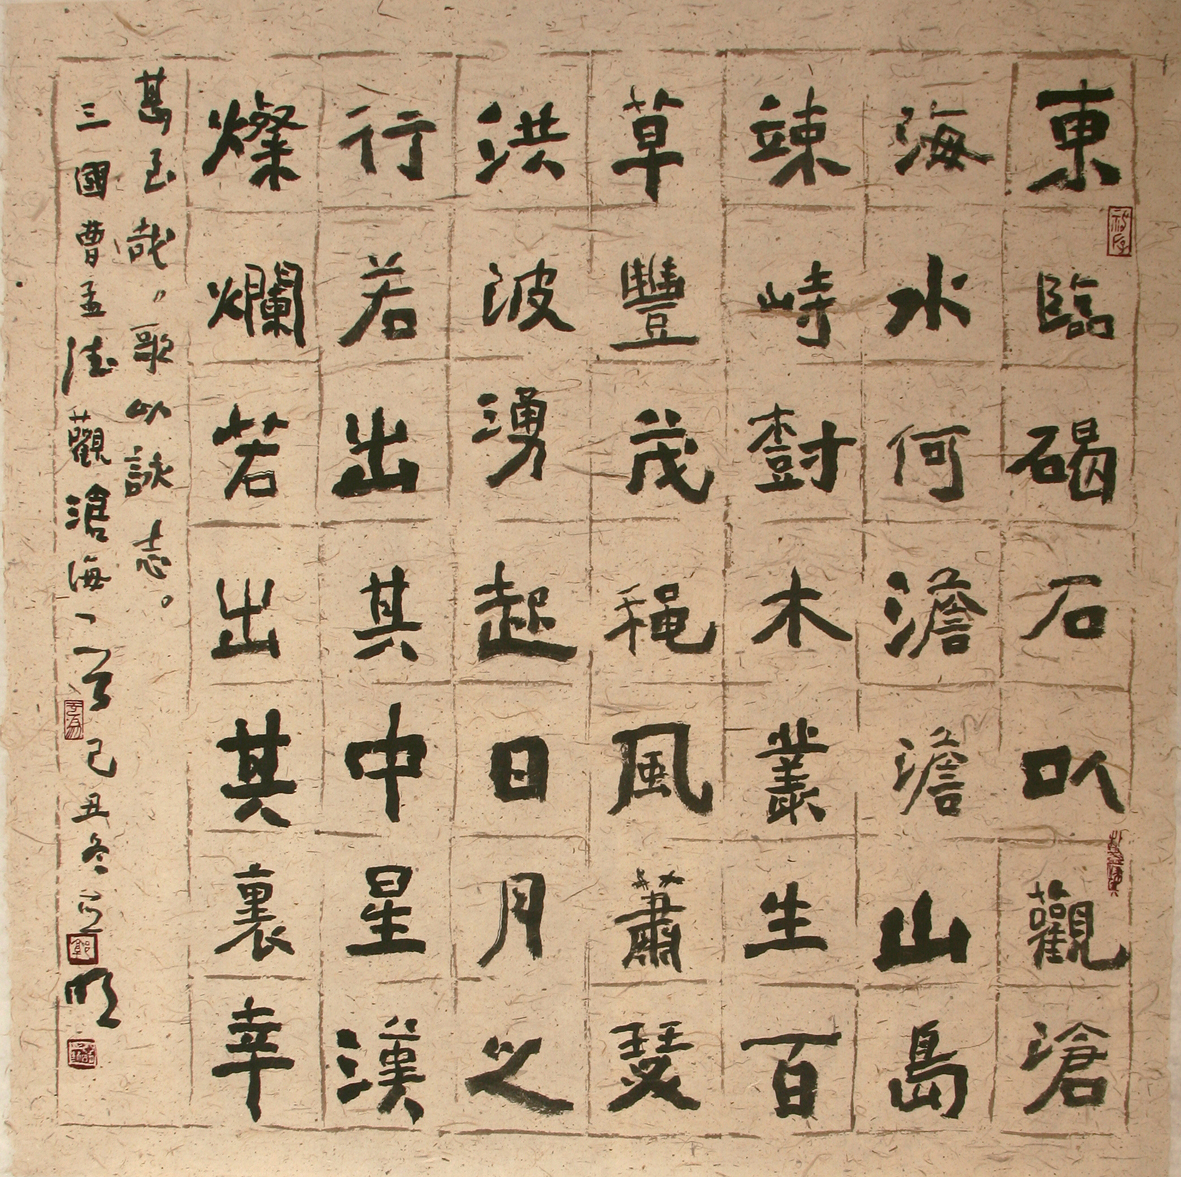 東臨碣石㕥觀滄
海水何澹澹山島
竦峙樹木叢生百
草豐茂穐風蕭瑟
洪波湧起日月之
行若出其中星漢
燦爛若出其裏幸
甚至哉。歌以詠志。
三國曹孟德觀滄海一首己丑冬明